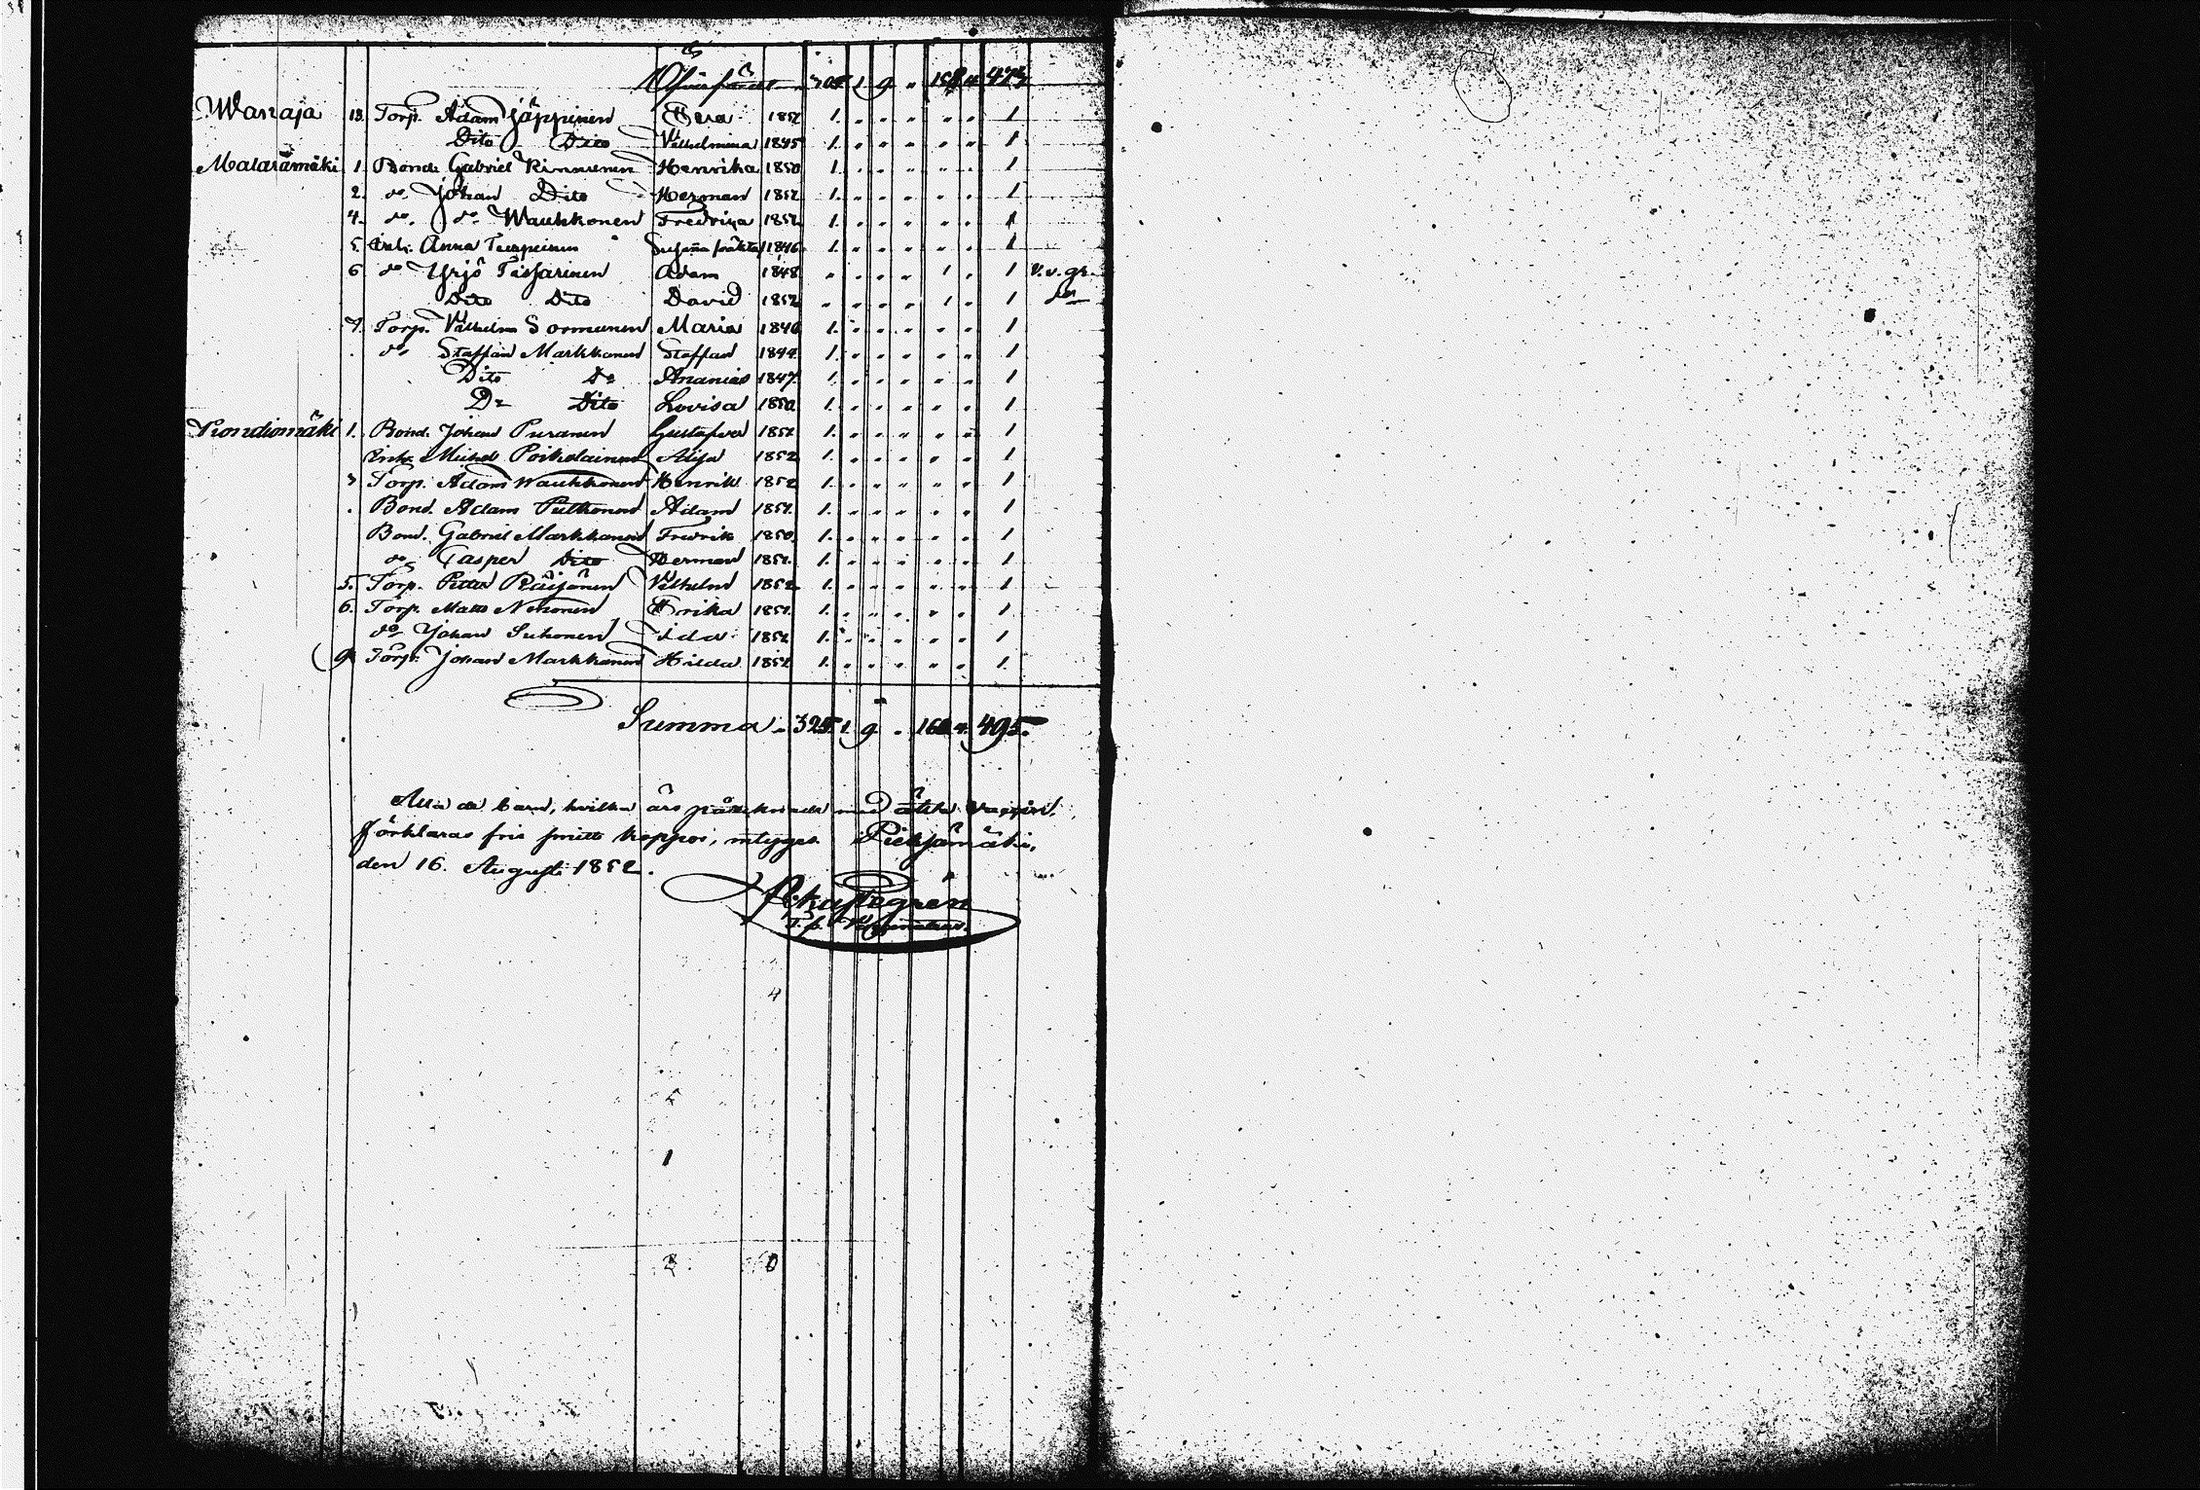 305 1 9 " 158 " 473
Wanaja 13. Torp. Adam Jäppinen 1852 1. " " " " " 1
Dito Dito Vilhelmina 1845 1. " " " " " 1
Matarämäki 1. Bond. Gabriel Rinnunen Henrika 1850 1. " " " " " 1
2. do Johan Dito Herman 1852 1. " " " " " 1
4. do. do Waukkonen Fredrika 1852 1. " " " " " 1
5. Enk. Anna 1846 1. " " " " " 1
6 do Yrjö Adam 1848 " " " " 1 " 1 v.v.gr.
Dito Dito David 1852 " " " " 1 " 1 do
7. Torp. Vilhelm Sormunen Maria 1846 1. " " " " " 1
. do Staffan Markkanen Staffan 1844 1. " " " " " 1
Dito Do Ananias 1847 1. " " " " " 1
Do Dito Lovisa 1850 1. " " " " " 1
Kondiomäki 1. Bond. Johan Puranen Gustafva 1852 1. " " " " " 1
Inh. Michel Poikolainen 1852 1. " " " " " 1
3 Torp. Adam Waukkonen Henrik 1852 1. " " " " " 1
. Bond. Adam Pulkonen Adam 1851. 1. " " " " " 1
Bond. Gabriel Markkanen Fredrik 1850. 1. " " " " " 1
do Casper Dito Herman 1851. 1. " " " " " 1
5. Torp. Petter Räisänen Vilhelm 1852 1. " " " " " 1
6. Torp. Matts Erika 1851. 1. " " " " " 1
do Johan Suhonen Ida 1852 1. " " " " " 1
9. Torp. Johan Markkanen Hilda 1852 1. " " " " " 1.
Summa " 325. 1. 9. " 160. " 495.
Alla de barn, hvilka äro påteknade med äkta vaccin,
förklaras fria smitto koppor, intygger. Pieksämäki,
den 16. Augusti 1852.